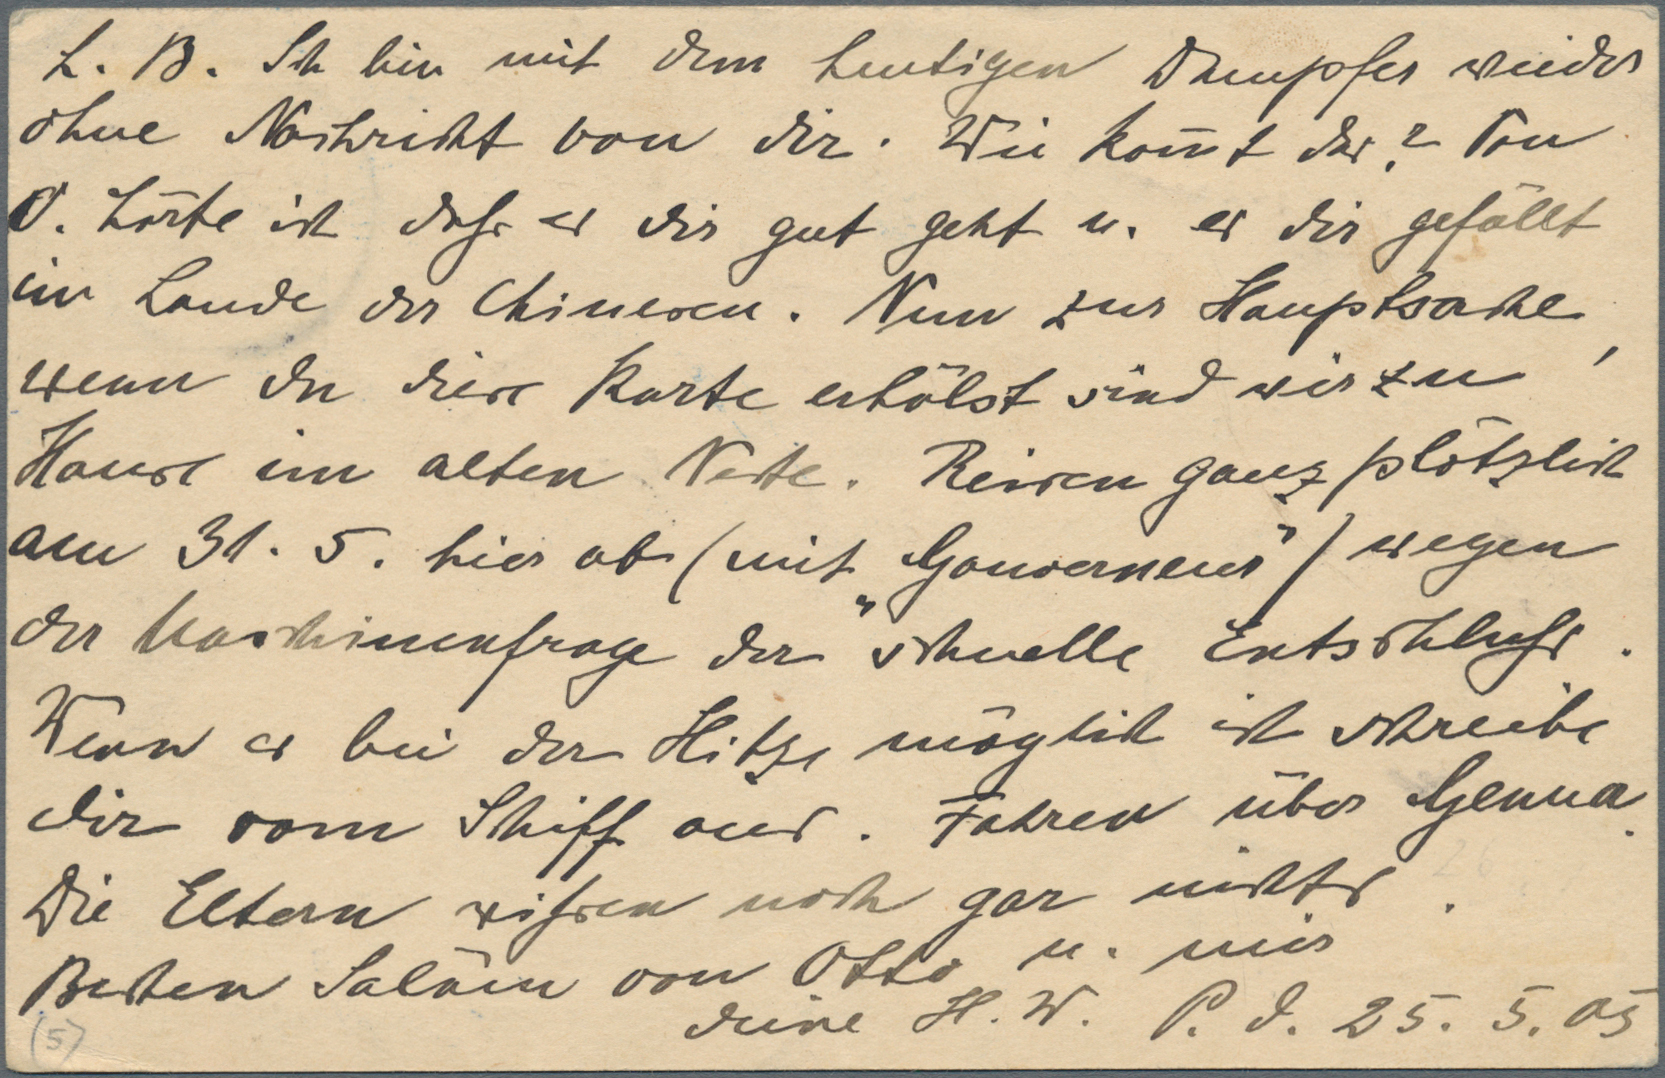 L. B. Ich bin mit dem heutigen Dampfer wieder
ohne Nachricht von dir. Wie kom̄t das? Von
O. hörte ich dass es dir gut geht u. es dir gefällt
im Lande der Chinesen. Nun zur Hauptsache,
wenn du diese Karte erhälst sind wir zu
Hause im alten Neste. Reisen ganz plötzlich
am 31. 5. hier ab (mit „Gouverneur") wegen
der Maschinenfrage der schnelle Entschluss.
Wenn es bei der Hitze möglich ist schreibe
dir vom Schiff aus. Fahren über Genua.
Die Eltern wissen noch gar nichts.
Besten Salām von Otto u. mir
deine H. W. P. d. 25. 5. 05
(5)